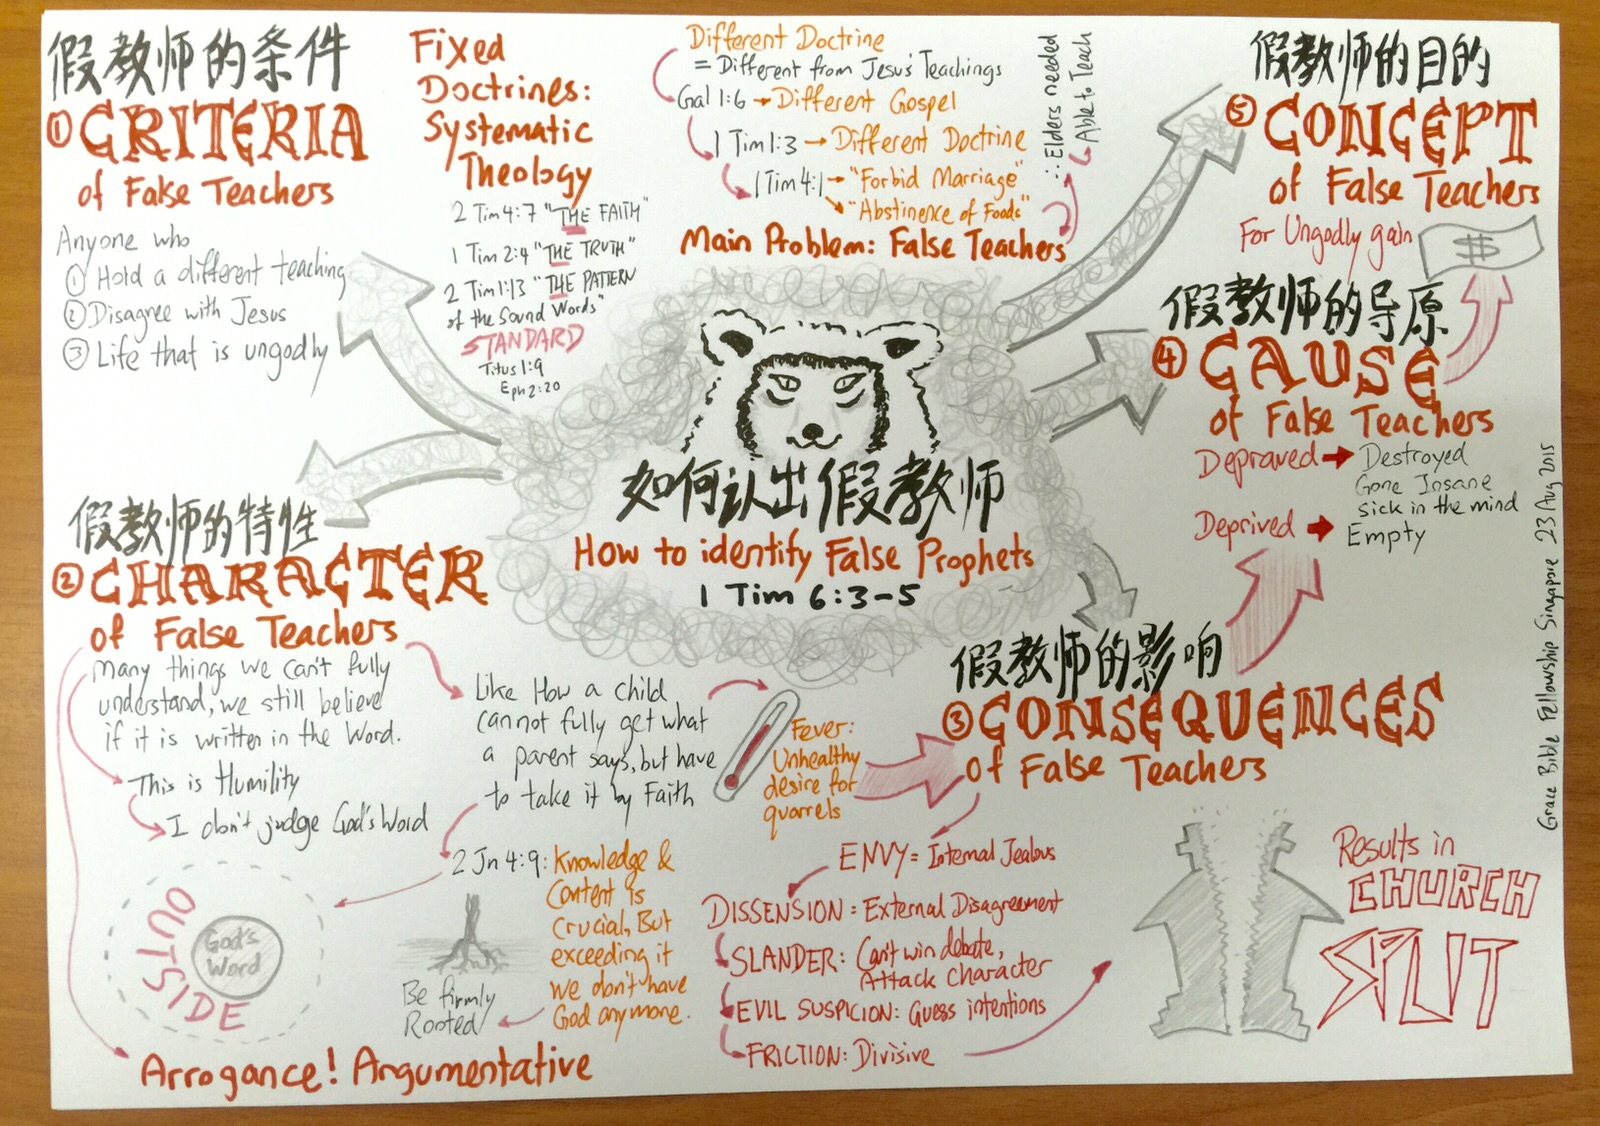 假教师的条件
① CRITERIA
of False Teachers
Anyone who
① Hold a different teaching
② Disagree with Jesus
③ Life that is ungodly
Fixed
Doctrines:
Systematic
Theology
2 Tim 4:7 "THE FAITH"
1 Tim 2:4 "THE TRUTH"
2 Tim 1:13 "THE PATTERN
of the Sound Words"
STANDARD
Titus 1:9
Eph 2:20
Different Doctrine
= Different from Jesus' Teachings
Gal 1:6 → Different Gospel
1 Tim 1:3 → Different Doctrine
1 Tim 4:1 → "Forbid Marriage"
"Abstinence of Foods"
Main Problem: False Teachers
∴ Elders needed
Able to Teach
假教师的目的
⑤ CONCEPT
of False Teachers
For Ungodly gain
$
假教师的导原
④ CAUSE
of False Teachers
Depraved → Destroyed
Gone Insane
sick in the mind
Deprived → Empty
如何认出假教师
How to identify False Prophets
1 Tim 6:3-5
假教师的特性
② CHARACTER
of False Teachers
Many things we can't fully
understand, we still believe
if it is written in the Word.
This is Humility
I don't judge God's Word
Like How a child
cannot fully get what
a parent says, but have
to take it by Faith
2 Jn 4:9: Knowledge &
Content is
crucial, But
exceeding it
we don't have
God anymore.
Be firmly
Rooted
OUTSIDE
God's
Word
Arrogance! Argumentative
Fever:
Unhealthy
desire for
quarrels
假教师的影响
③ CONSEQUENCES
of False Teachers
ENVY = Internal Jealous
DISSENSION = External Disagreement
SLANDER: Can't win debate,
Attack Character
EVIL SUSPICION: Guess intentions
FRICTION: Divisive
Results in
CHURCH
SPLIT
Grace Bible Fellowship Singapore 23 Aug 2015